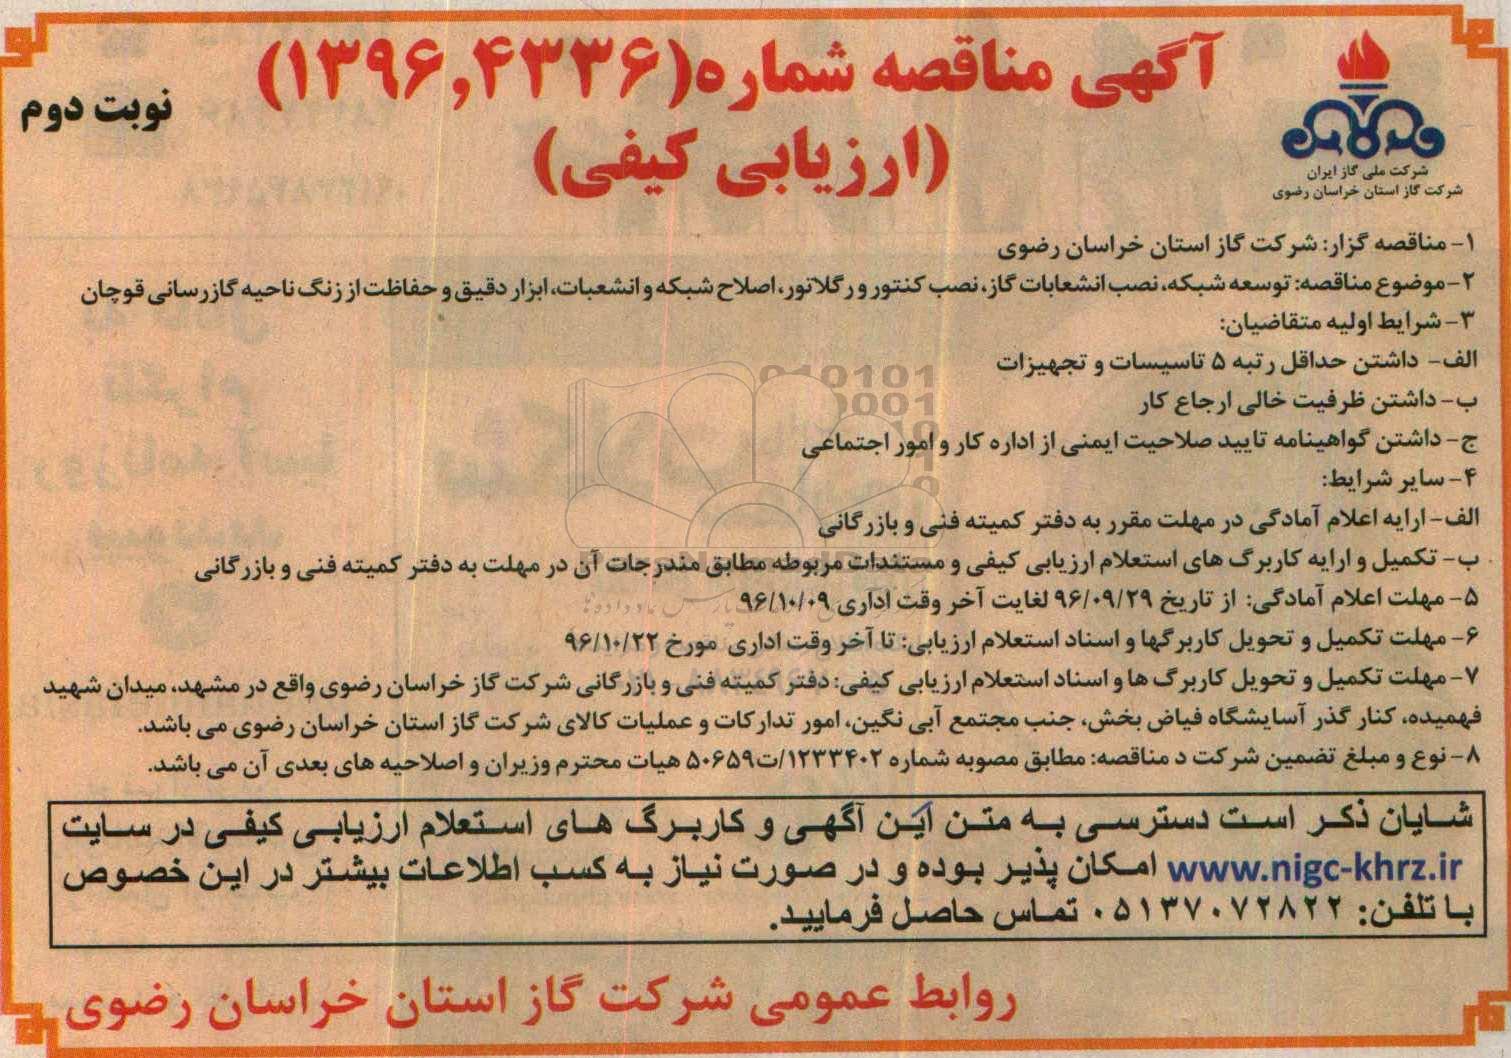 آگهی مناقصه شماره(۱۳۹۶,۴۳۳۶)
(ارزیابی کیفی)
نوبت دوم
شرکت ملی گاز ایران
شرکت گاز استان خراسان رضوی
۱- مناقصه گزار: شرکت گاز استان خراسان رضوی
۲-موضوع مناقصه: توسعه شبکه، نصب انشعابات گاز، نصب کنتور و رگلاتور، اصلاح شبکه و انشعبات، ابزار دقیق و حفاظت از زنگ ناحیه گازرسانی قوچان
۳- شرایط اولیه متقاضیان:
الف- داشتن حداقل رتبه ۵ تاسیسات و تجهیزات
ب- داشتن ظرفیت خالی ارجاع کار
ج- داشتن گواهینامه تایید صلاحیت ایمنی از اداره کار و امور اجتماعی
۴- سایر شرایط:
الف- ارایه اعلام آمادگی در مهلت مقرر به دفتر کمیته فنی و بازرگانی
ب- تکمیل و ارایه کاربرگ های استعلام ارزیابی کیفی و مستندات مربوطه مطابق مندرجات آن در مهلت به دفتر کمیته فنی و بازرگانی
۵- مهلت اعلام آمادگی: از تاریخ ۹۶/۰۹/۲۹ لغایت آخر وقت اداری ۹۶/۱۰/۰۹
۶- مهلت تکمیل و تحویل کاربرگها و اسناد استعلام ارزیابی: تا آخر وقت اداری مورخ ۹۶/۱۰/۲۲
۷- مهلت تکمیل و تحویل کاربرگ ها و اسناد استعلام ارزیابی کیفی: دفتر کمیته فنی و بازرگانی شرکت گاز خراسان رضوی واقع در مشهد، میدان شهید
فهمیده، کنار گذر آسایشگاه فیاض بخش، جنب مجتمع آبی نگین، امور تدارکات و عملیات کالای شرکت گاز استان خراسان رضوی می باشد.
۸- نوع و مبلغ تضمین شرکت د مناقصه: مطابق مصوبه شماره ۱۲۳۳۴۰۲/ت۵۰۶۵۹ هیات محترم وزیران و اصلاحیه های بعدی آن می باشد.
شایان ذکر است دسترسی به متن این آگهی و کاربرگ های استعلام ارزیابی کیفی در سایت
www.nigc-khrz.ir امکان پذیر بوده و در صورت نیاز به کسب اطلاعات بیشتر در این خصوص
با تلفن: ۰۵۱۳۷۰۷۲۸۲۲ تماس حاصل فرمایید.
روابط عمومی شرکت گاز استان خراسان رضوی